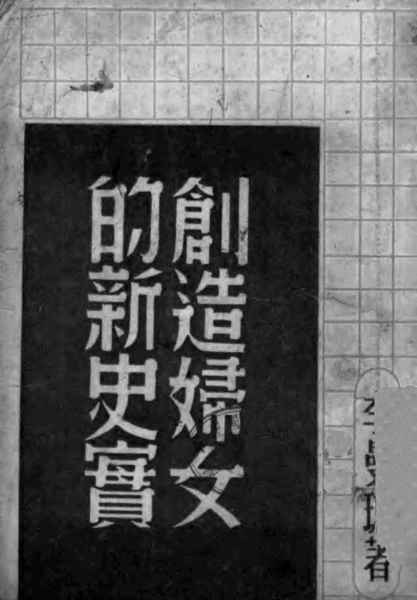 創造婦女
的新史實
者